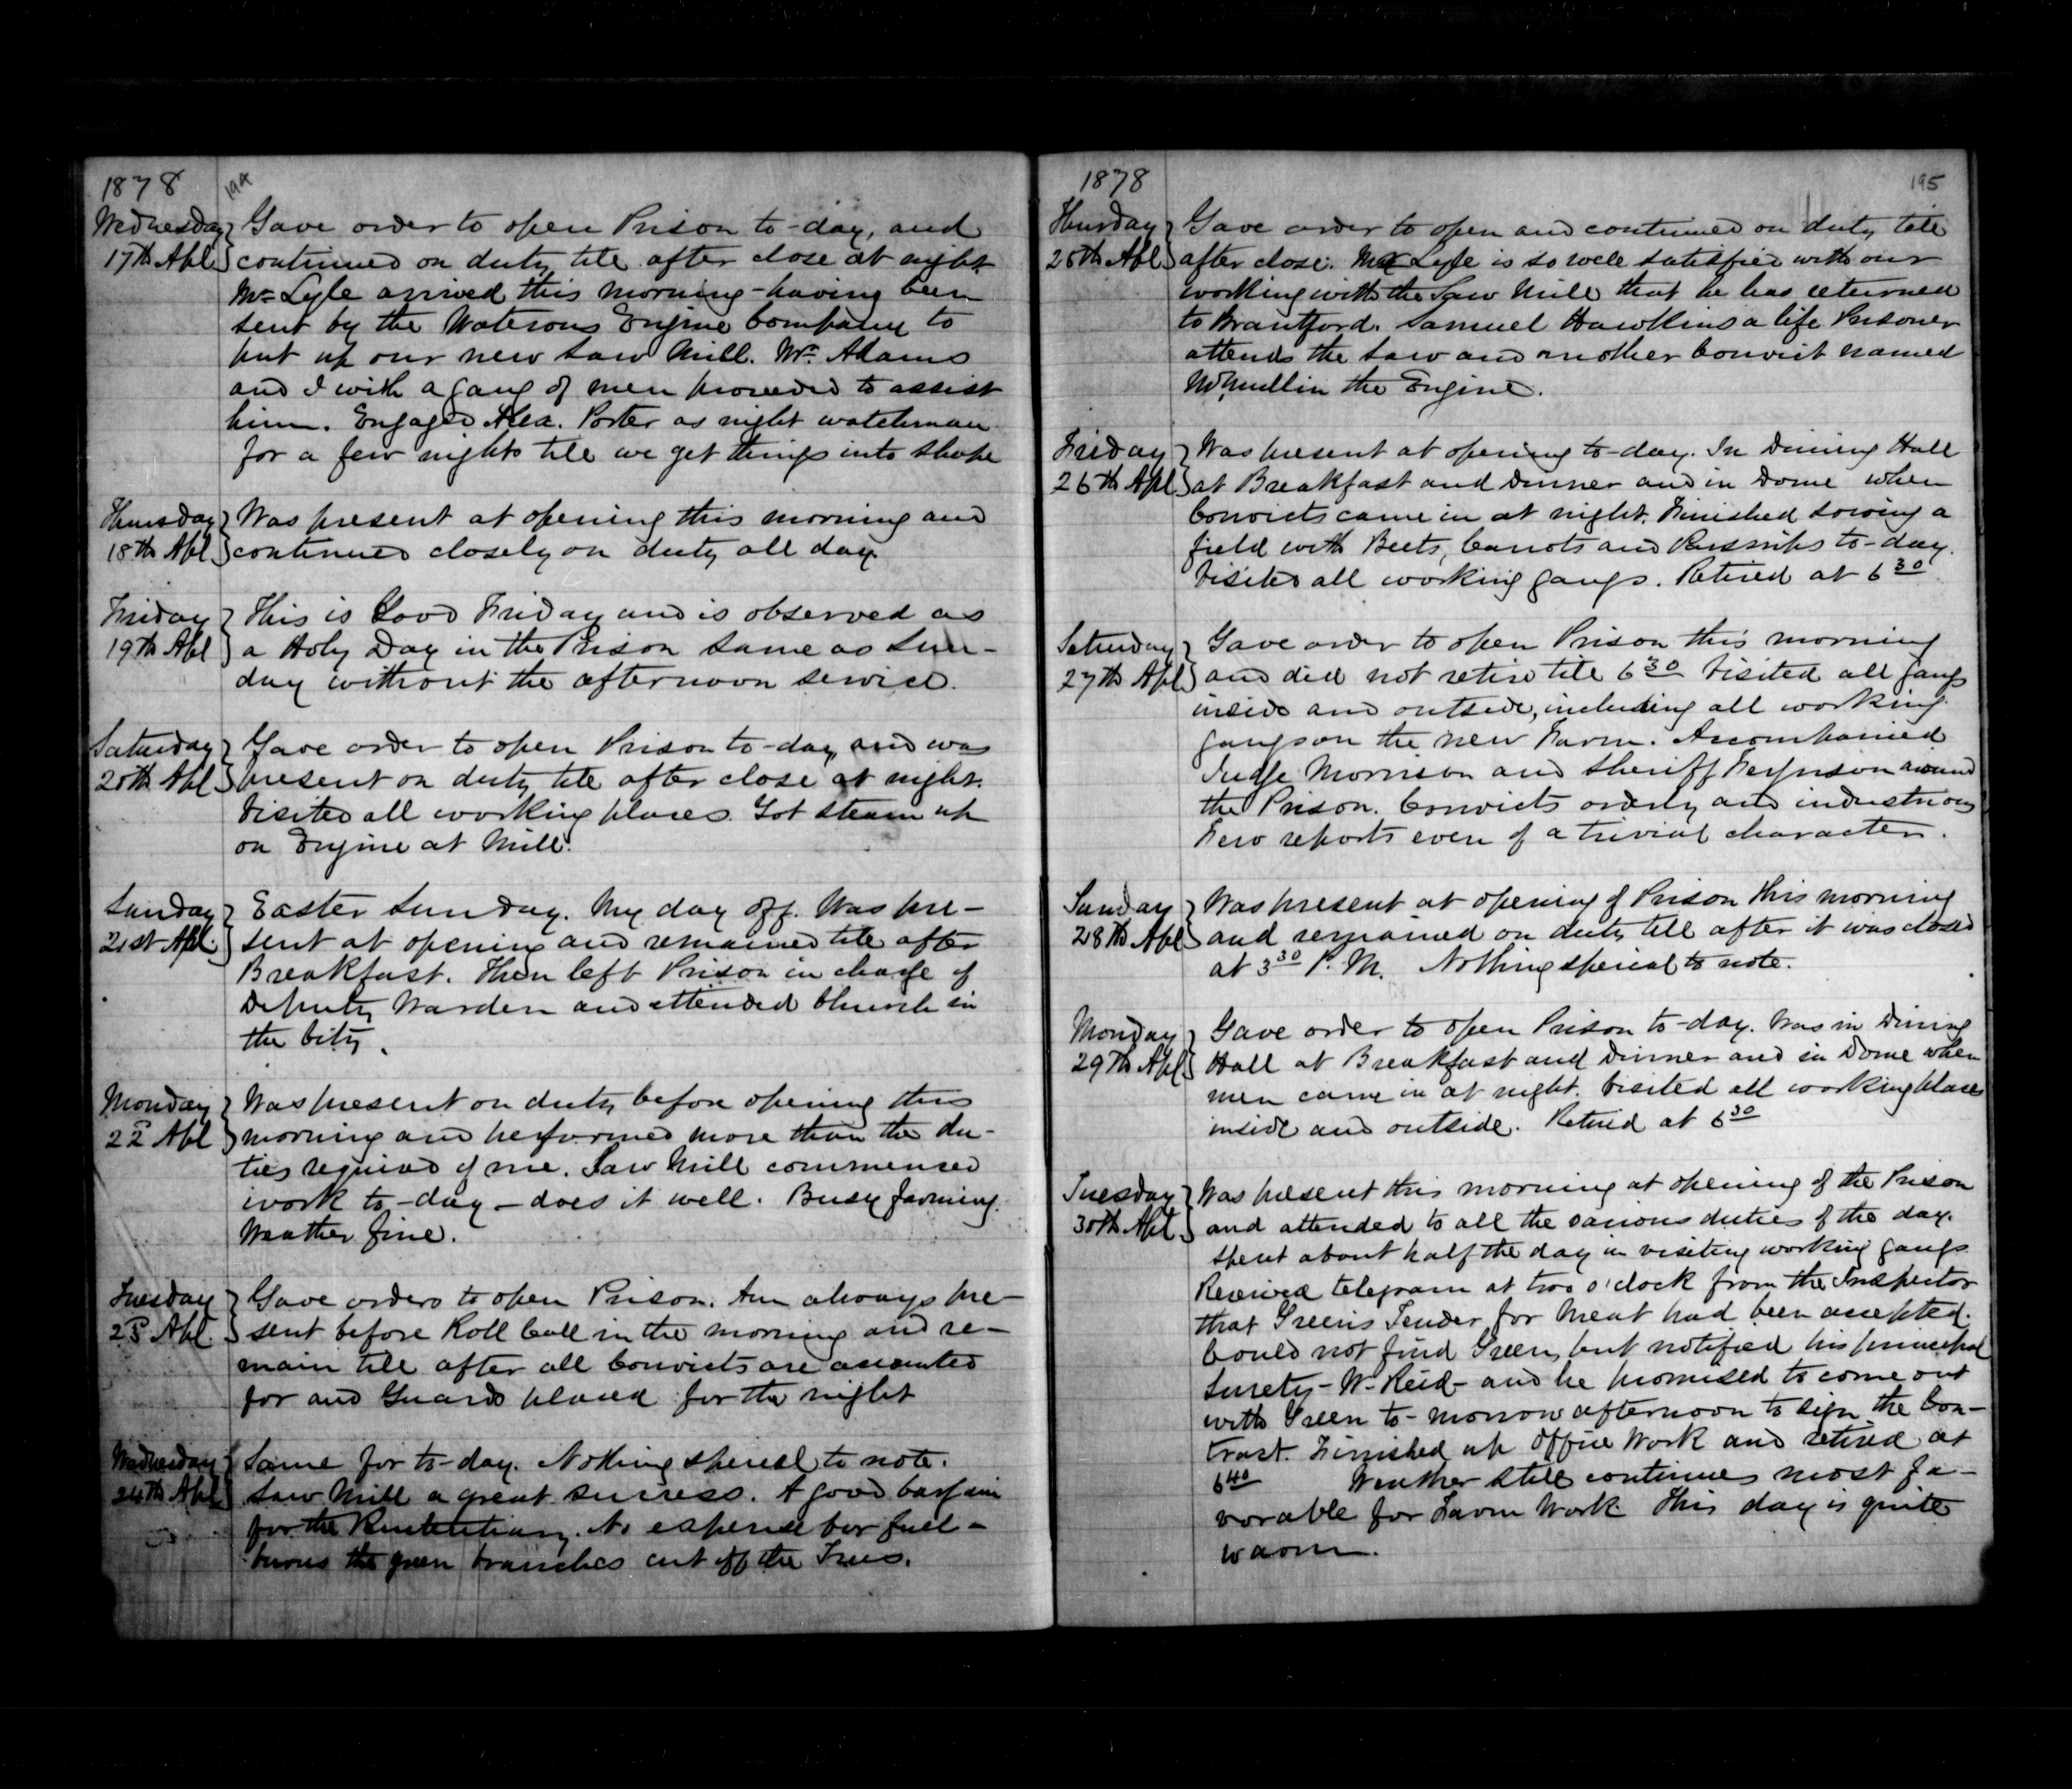 1878 194
Wednesday } Gave order to open Prison to-day, and
17th Apl } continued on duty till after close at night.
Mr Lyle arrived this morning - having been
sent by the Waterous Engine Company to
put up our new Saw Mill. Mr. Adams
and I with a gang of men proceeded to assist
him. Engaged Alex. Porter as night watchman
for a few nights till we get things into shape
Thursday } Was present at opening this morning and
18th Apl } continued closely on duty all day.
Friday } This is Good Friday and is observed as
19th Apl } a Holy Day in the Prison same as Sun-
day without the afternoon service.
Saturday } Gave order to open Prison to-day, and was
20th Apl } present on duty till after close at night.
Visited all working places. Got steam up
on Engine at Mill.
Sunday } Easter Sunday. My day off. Was pre-
21st Apl. } sent at opening and remained till after
Breakfast. Then left Prison in charge of
Deputy Warden and attended Church in
the City.
Monday } Was present on duty before opening this
22d Apl } morning and performed more than the du-
ties required of me. Saw Mill commenced
work to-day - does it well. Busy farming.
Weather fine.
Tuesday } Gave orders to open Prison. Am always pre-
23d Apl. } sent before Roll Call in the morning and re-
main till after all Convicts are accounted
for and Guards placed for the night
Wednesday } Same for to-day. Nothing special to note.
24th Apl } Saw Mill a great success. A good bargain
for the Penitentiary. No expense for fuel -
burns the green branches cut off the Trees.
1878 195
Thursday } Gave order to open and continued on duty till
25th Apl } after close. Mr Lyle is so well satisfied with our
working with the Saw Mill that he has returned
to Brantford. Samuel Hawkins a life Prisoner
attends the Saw and another Convict named
McMullin the Engine.
Friday } Was present at opening to-day. In Dining Hall
26th Apl } at Breakfast and Dinner and in Dome when
Convicts came in at night. Finished sowing a
field with Beets, Carrots and Parsnips to-day.
Visited all working gangs. Retired at 6 30
Saturday } Gave order to open Prison this morning
27th Apl } and did not retire till 6 30 Visited all gangs
inside and outside, including all working
gangs on the new Farm. Accompanied
Judge Morrison and Sheriff Ferguson around
the Prison. Convicts orderly and industrious
Few reports even of a trivial character.
Sunday } Was present at opening of Prison this morning
28th Apl } and remained on duty till after it was closed
at 3 30 P.M. Nothing special to note.
Monday } Gave order to open Prison to-day. Was in Dining
29th Apl } Hall at Breakfast and Dinner and in Dome when
men came in at night. Visited all working places
inside and outside. Retired at 6 30
Tuesday } Was present this morning at opening of the Prison
30th Apl } and attended to all the various duties of the day.
Spent about half the day in visiting working gangs.
Received telegram at two o'clock from the Inspector
that Green's Tender for Meat had been accepted.
Could not find Green, but notified his principal
Surety - W. Reid - and he promised to come out
with Green to-morrow afternoon to sign the Con-
tract. Finished up Office Work and retired at
6 40 Weather still continues most fa-
vorable for Farm Work This day is quite
warm.